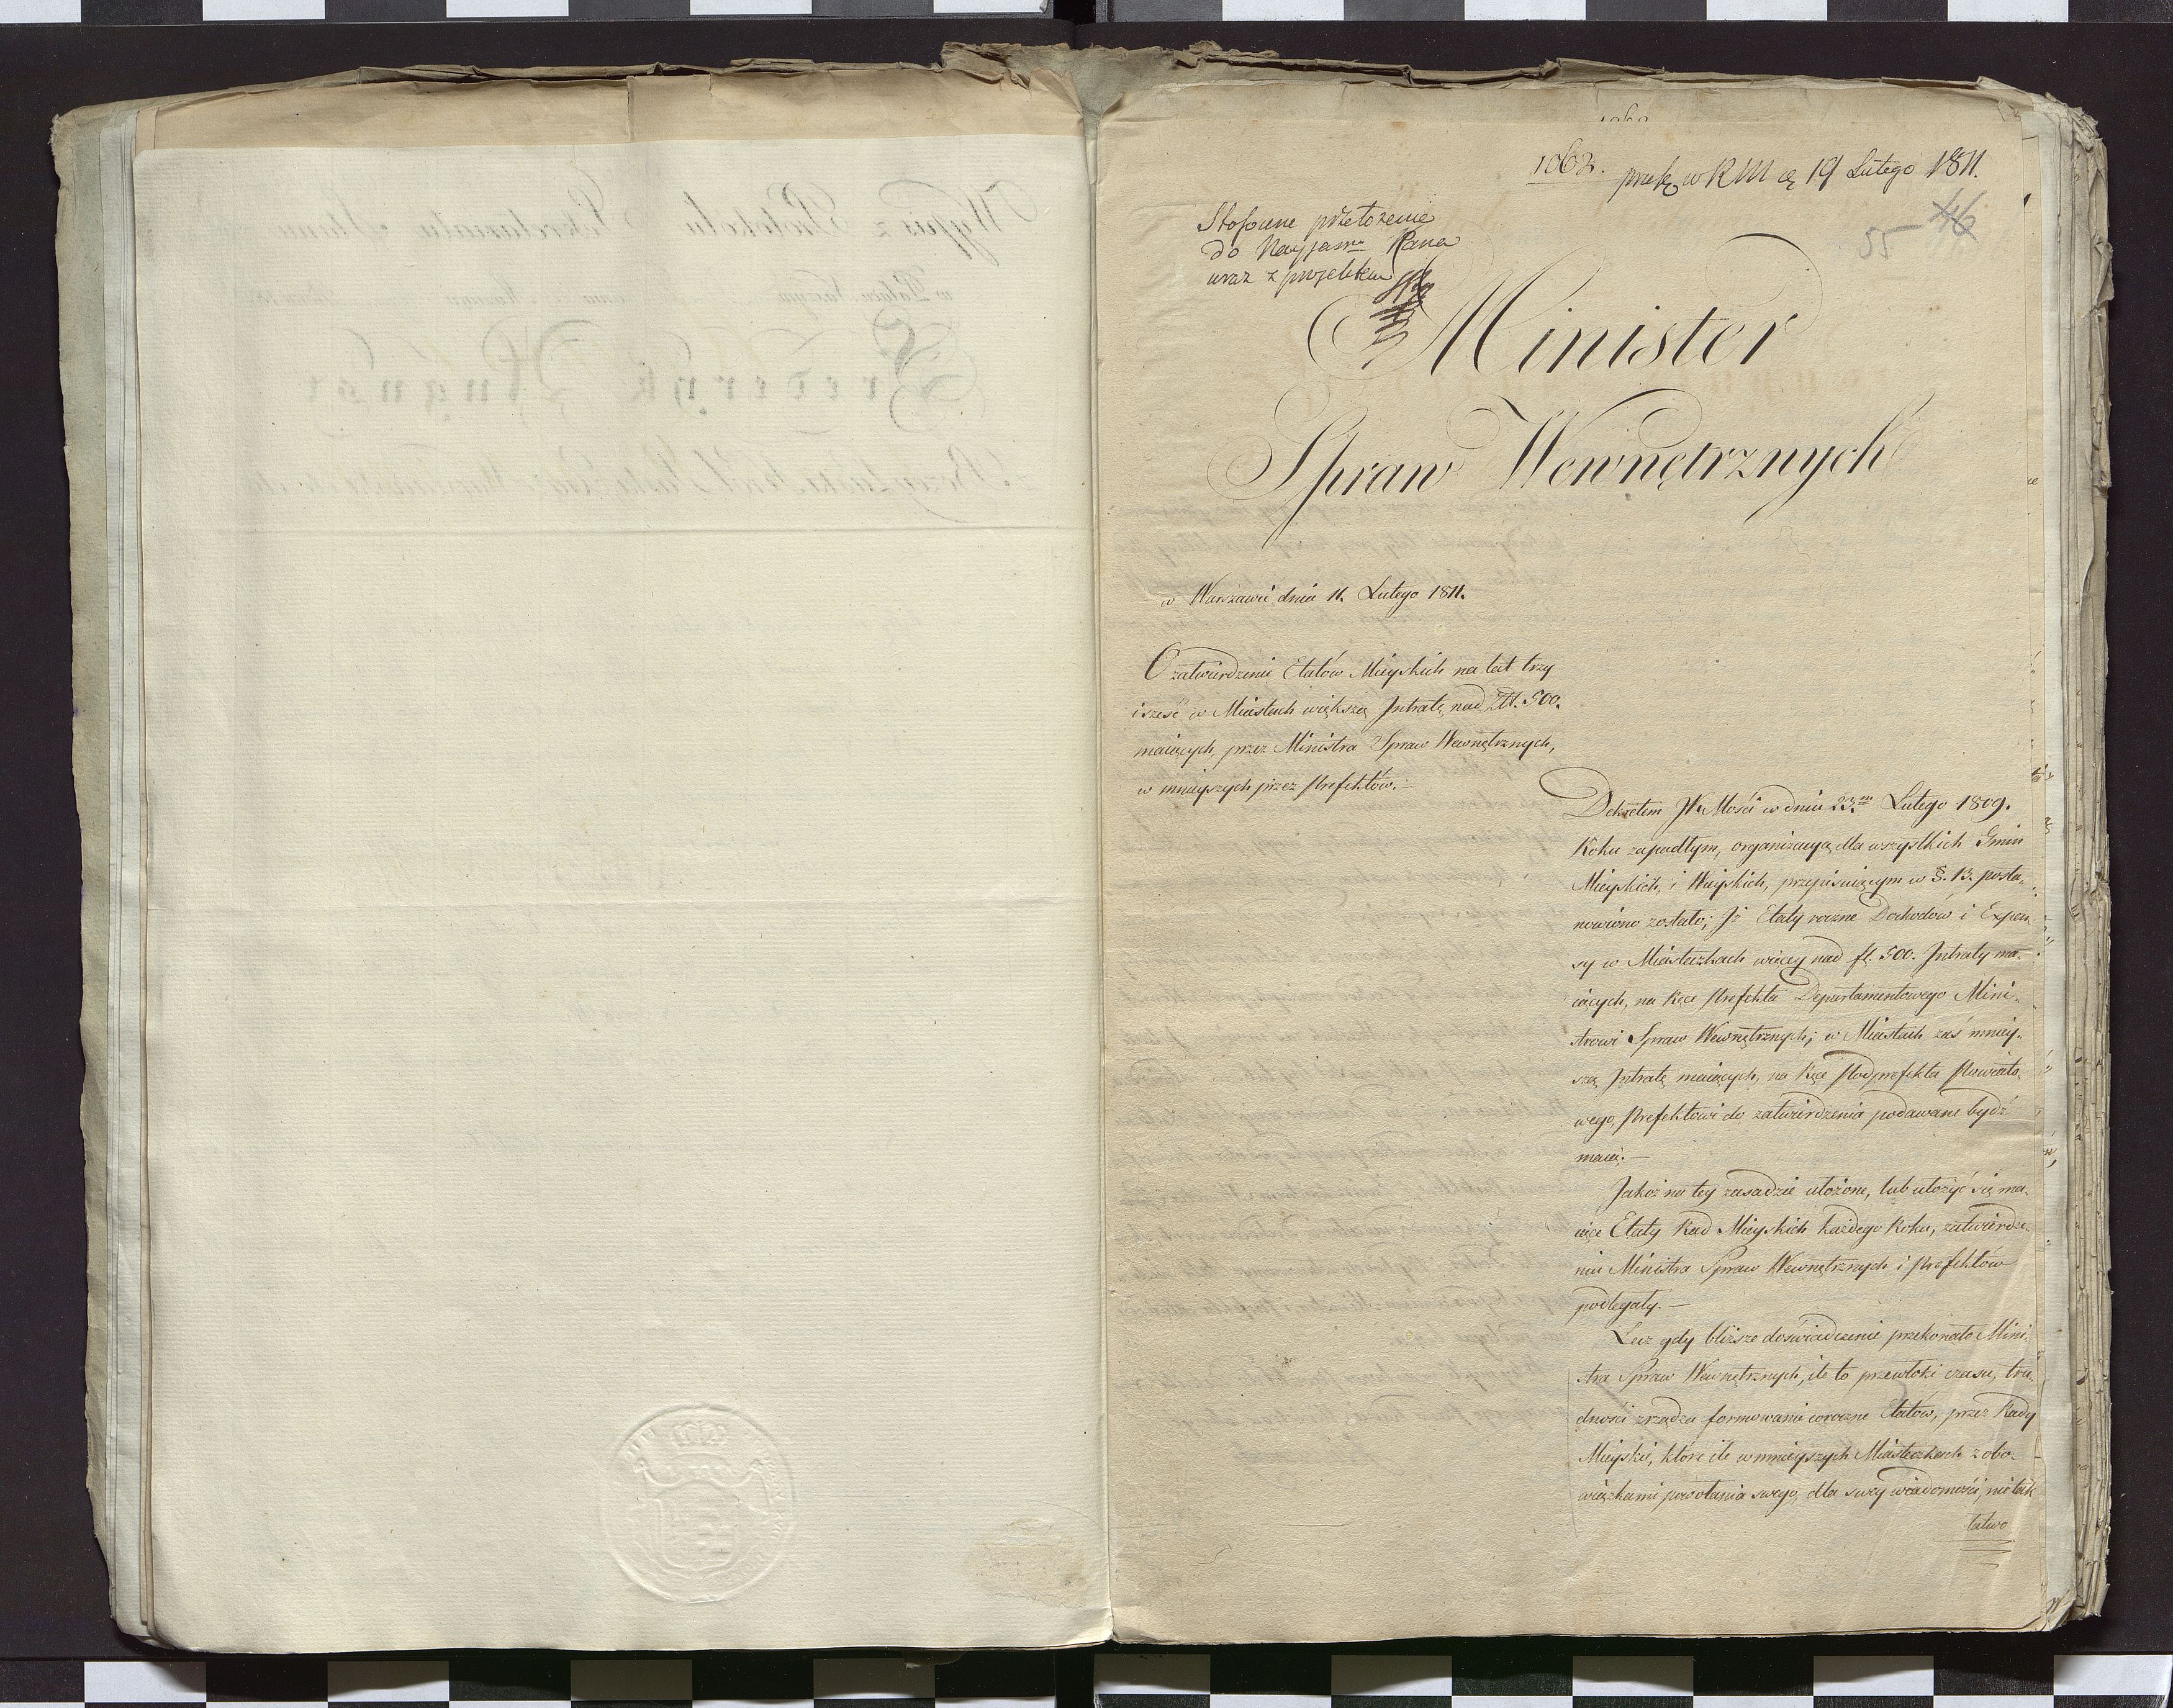 1063. w RM 19 Lutego 1811.
Stosowne przełożenie
do Nayjasn. Pana
wraz z projektem
55 46
Minister
Spraw Wewnętrznych
w Warszawie dnia 11. Lutego 1811.
O zatwierdzenie Etatów Mieyskich na lat trzy
i sześć w Miastach większą Intratę nad Złł. 500.
maiących, przez Ministra Spraw Wewnętrznych,
w mnieyszych przez Prefektów.
Dekretem W. K. Mości w dniu 23.m Lutego 1809.
Roku zapadłym, organizacyą dla wszystkich Gmin
Mieyskich, i Wieyskich, przepisuiącym w §. 13. posta-
nowiono zostało; Iż Etaty roczne Dochodów i Expen-
sy w Miasteczkach więcey nad fl. 500. Intraty ma-
iących, na Ręce Prefekta Departamentowego Mini-
strowi Spraw Wewnętrznych; w Miastach zaś mniey-
szą Intratę maiących, na Ręce Podprefekta Powiato-
wego, Prefektowi do zatwierdzenia podawane bydź
maią. —
Jakoż na tey zasadzie ułożone, lub ułożyć się ma-
iące Etaty Rad Mieyskich każdego Roku, zatwierdze-
niu Ministra Spraw Wewnętrznych i Prefektów
podlegały. —
Lecz gdy bliższe doświadczenie przekonało Mini-
stra Spraw Wewnętrznych, ile to przewłoki czasu, tru-
dności zrządza formowanie coroczne Etatów, przez Rady
Mieyskie, które ile w mnieyszych Miasteczkach z obo-
wiązkami powołania swego, dla swey wiadomości, nie tak
łatwo